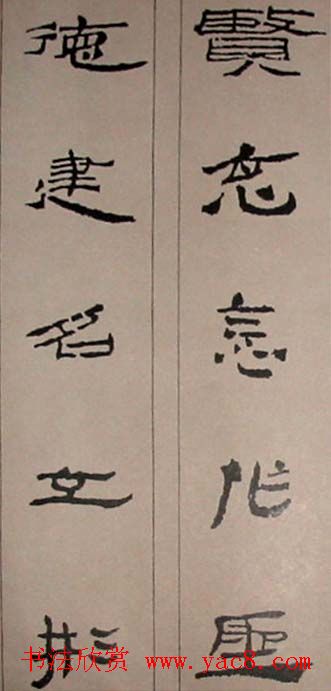 賢克念作聖
德建名立形
书法欣赏 www.yac8.com